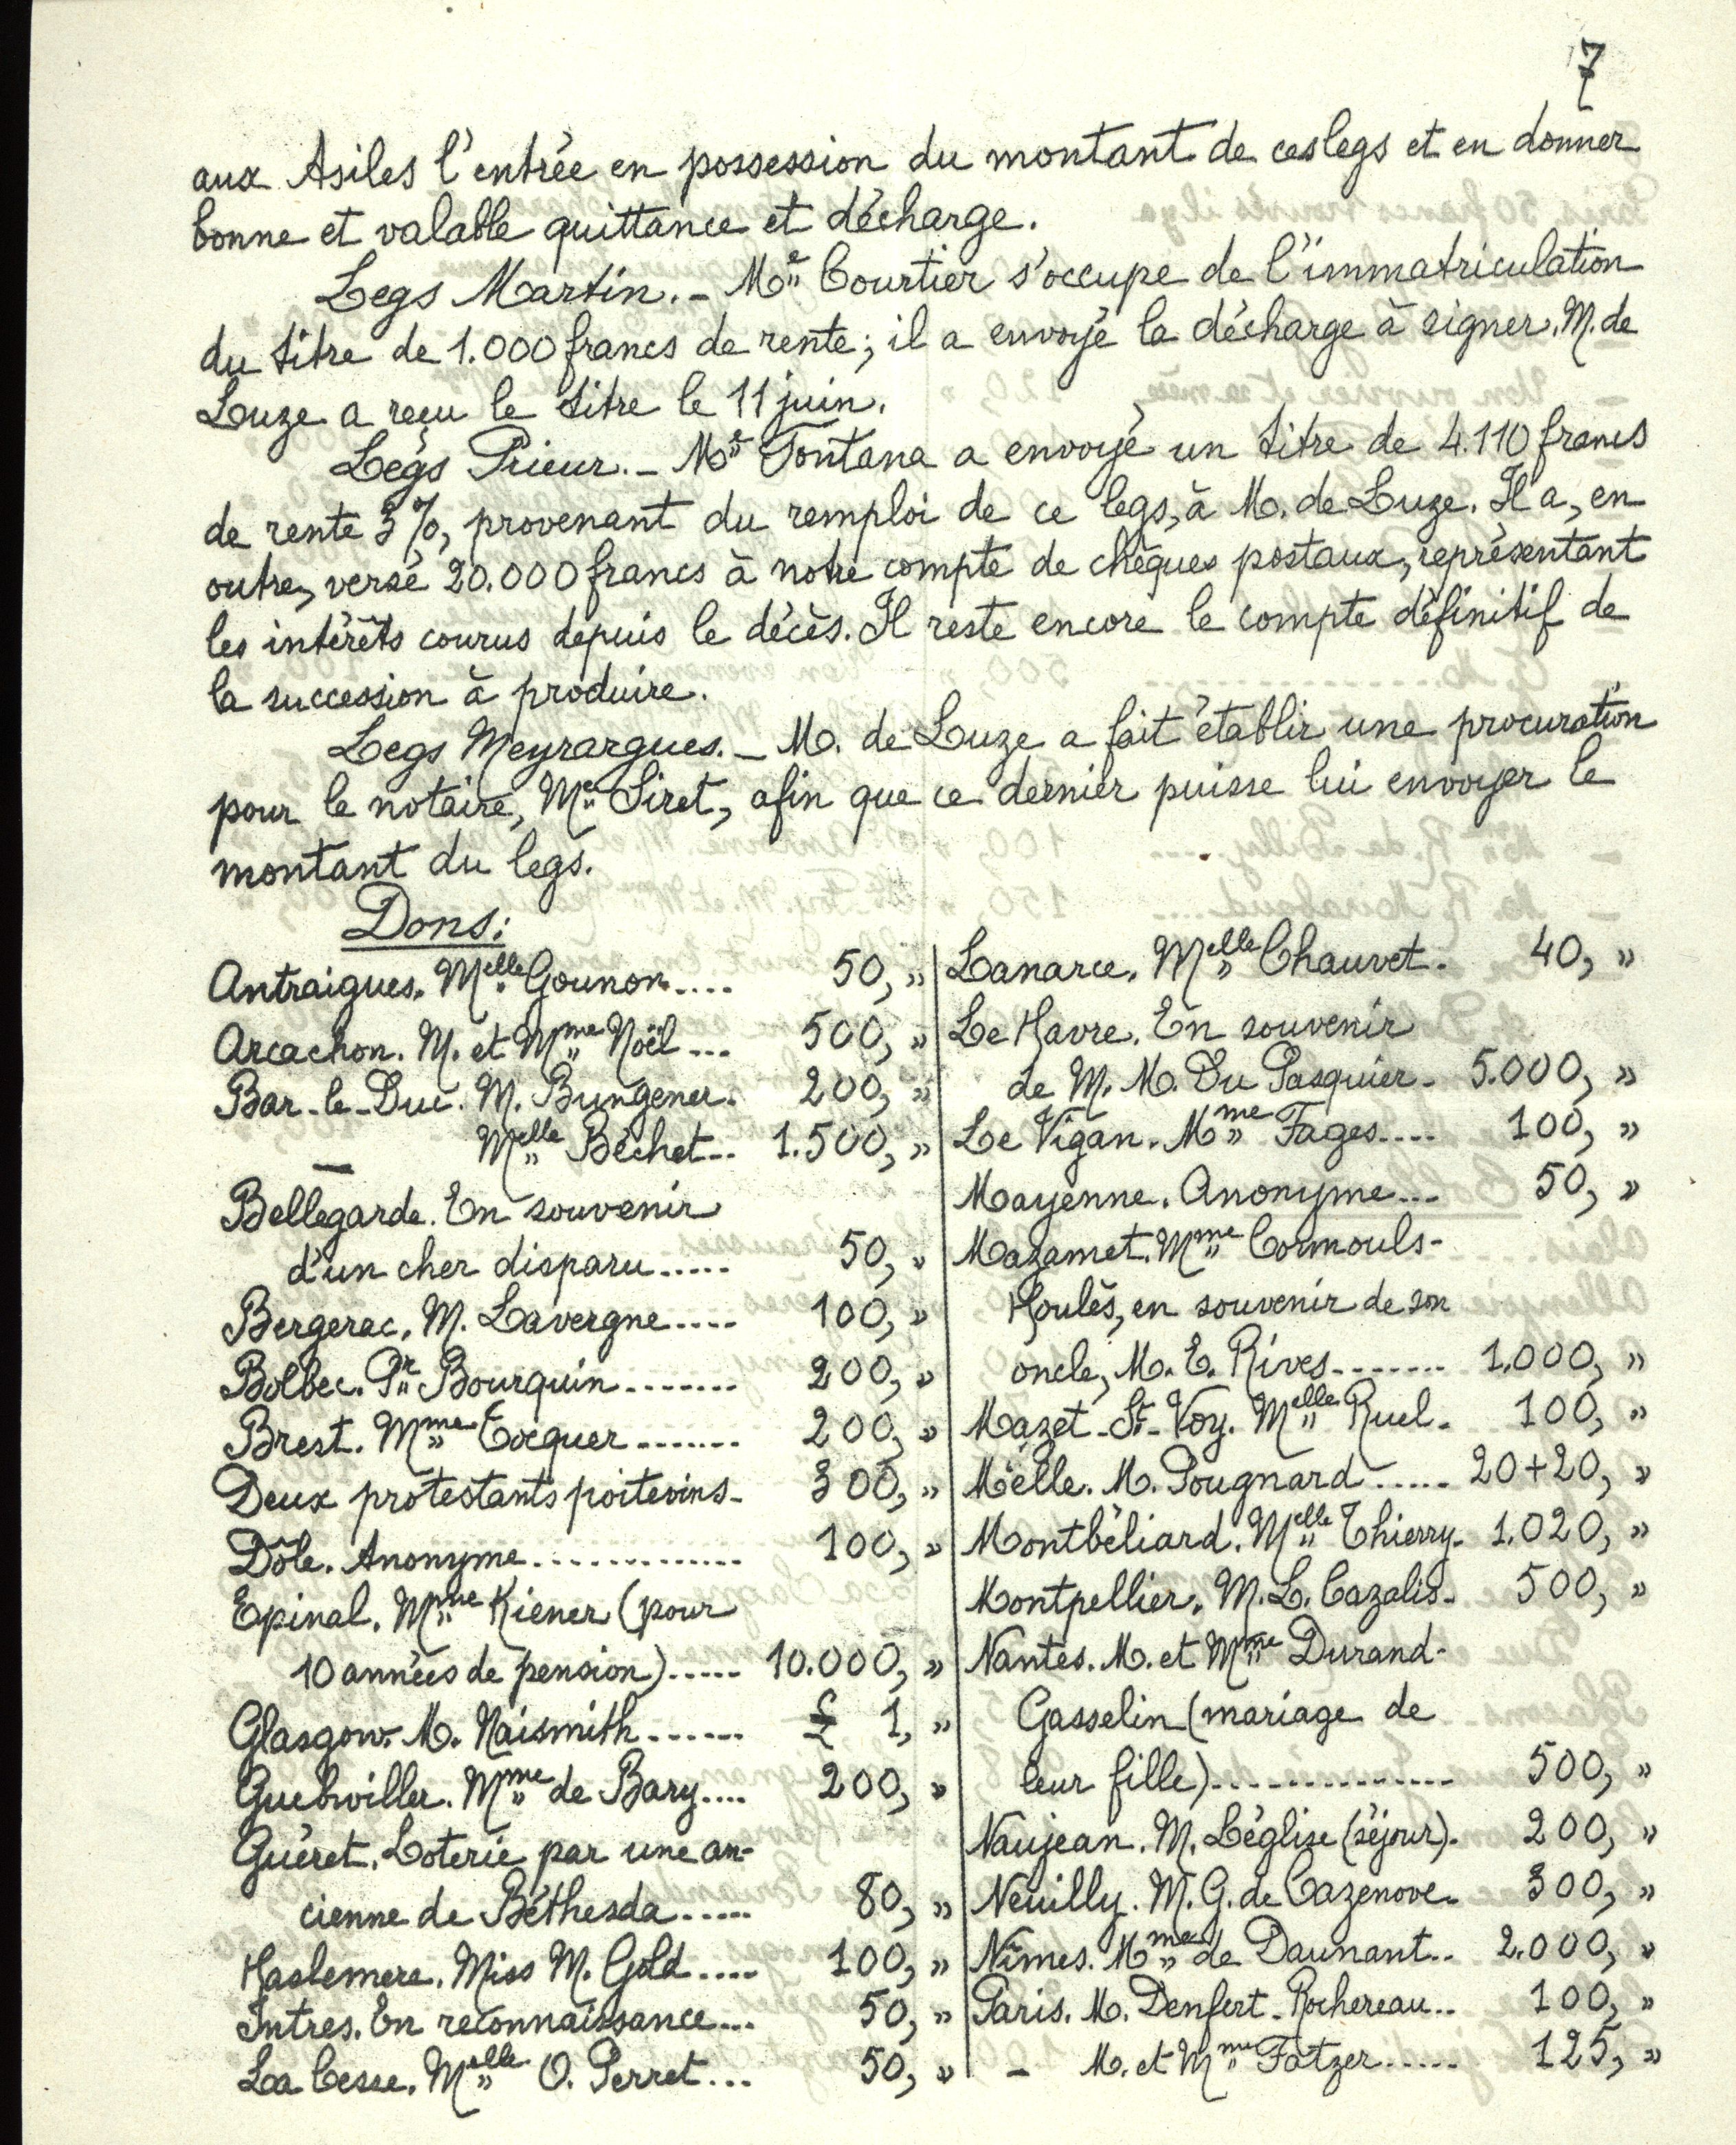 7
aux Asiles l'entrée en possession du montant de ces legs et en donner
bonne et valable quittance et décharge.
Legs Martin. - Me Courtier s'occupe de l'immatriculation
du titre de 1.000 francs de rente; il a envoyé la décharge à signer. M. de
Luze a reçu le titre le 11 juin.
Legs Prieur. - Me Fontana a envoyé un titre de 4.110 francs
de rente 3%, provenant du remploi de ce legs, à M. de Luze. Il a, en
outre, versé 20.000 francs à notre compte de chèques postaux, représentant
les intérêts courus depuis le décès. Il reste encore le compte définitif de
la succession à produire.
Legs Meyrargues. - M. de Luze a fait établir une procuration
pour le notaire, Me Siret, afin que ce dernier puisse lui envoyer le
montant du legs.
Dons:
Antraigues. Melle Gounon.... 50, »
Arcachon. M. et Mme Noël... 500, »
Bar-le-Duc. M. Bungener. 200, »
— Melle Béchet.. 1.500, »
Bellegarde. En souvenir
d'un cher disparu..... 50, »
Bergerac. M. Lavergne.... 100, »
Bolbec. Pr Bourquin....... 200, »
Brest. Mme Cocquer....... 200, »
Deux protestants poitevins- 300, »
Dôle. Anonyme............. 100, »
Epinal. Mme Kiener (pour
10 années de pension)..... 10.000, »
Glasgow. M. Naismith...... £ 1, »
Guebwiller. Mme de Bary.... 200, »
Guéret. Loterie par une an-
cienne de Béthesda..... 80, »
Haslemere. Miss M. Gold..... 100, »
Intres. En reconnaissance... 50, »
La Cesse. Melle O. Perret... 50, »
Lanarce. Melle Chauvet. 40, »
Le Havre. En souvenir
de M. M. Du Pasquier. 5.000, »
Le Vigan. Mme Fages.... 100, »
Mayenne. Anonyme... 50, »
Mazamet. Mme Cormouls-
Houlès, en souvenir de son
oncle, M. E. Rives........ 1.000, »
Mazet-St-Voy. Melle Ruel. 100, »
Melle. M. Pougnard..... 20+20, »
Montbéliard. Melle Thierry. 1.020, »
Montpellier. M. L. Cazalis. 500, »
Nantes. M. et Mme Durand-
Gasselin (mariage de
leur fille)............... 500, »
Naujean. M. Léglise (séjour). 200, »
Neuilly. M. G. de Cazenove. 300, »
Nîmes. Mme de Daunant.. 2.000, »
Paris. M. Denfert-Rochereau.. 100, »
- M. et Mme Fatzer..... 125, »